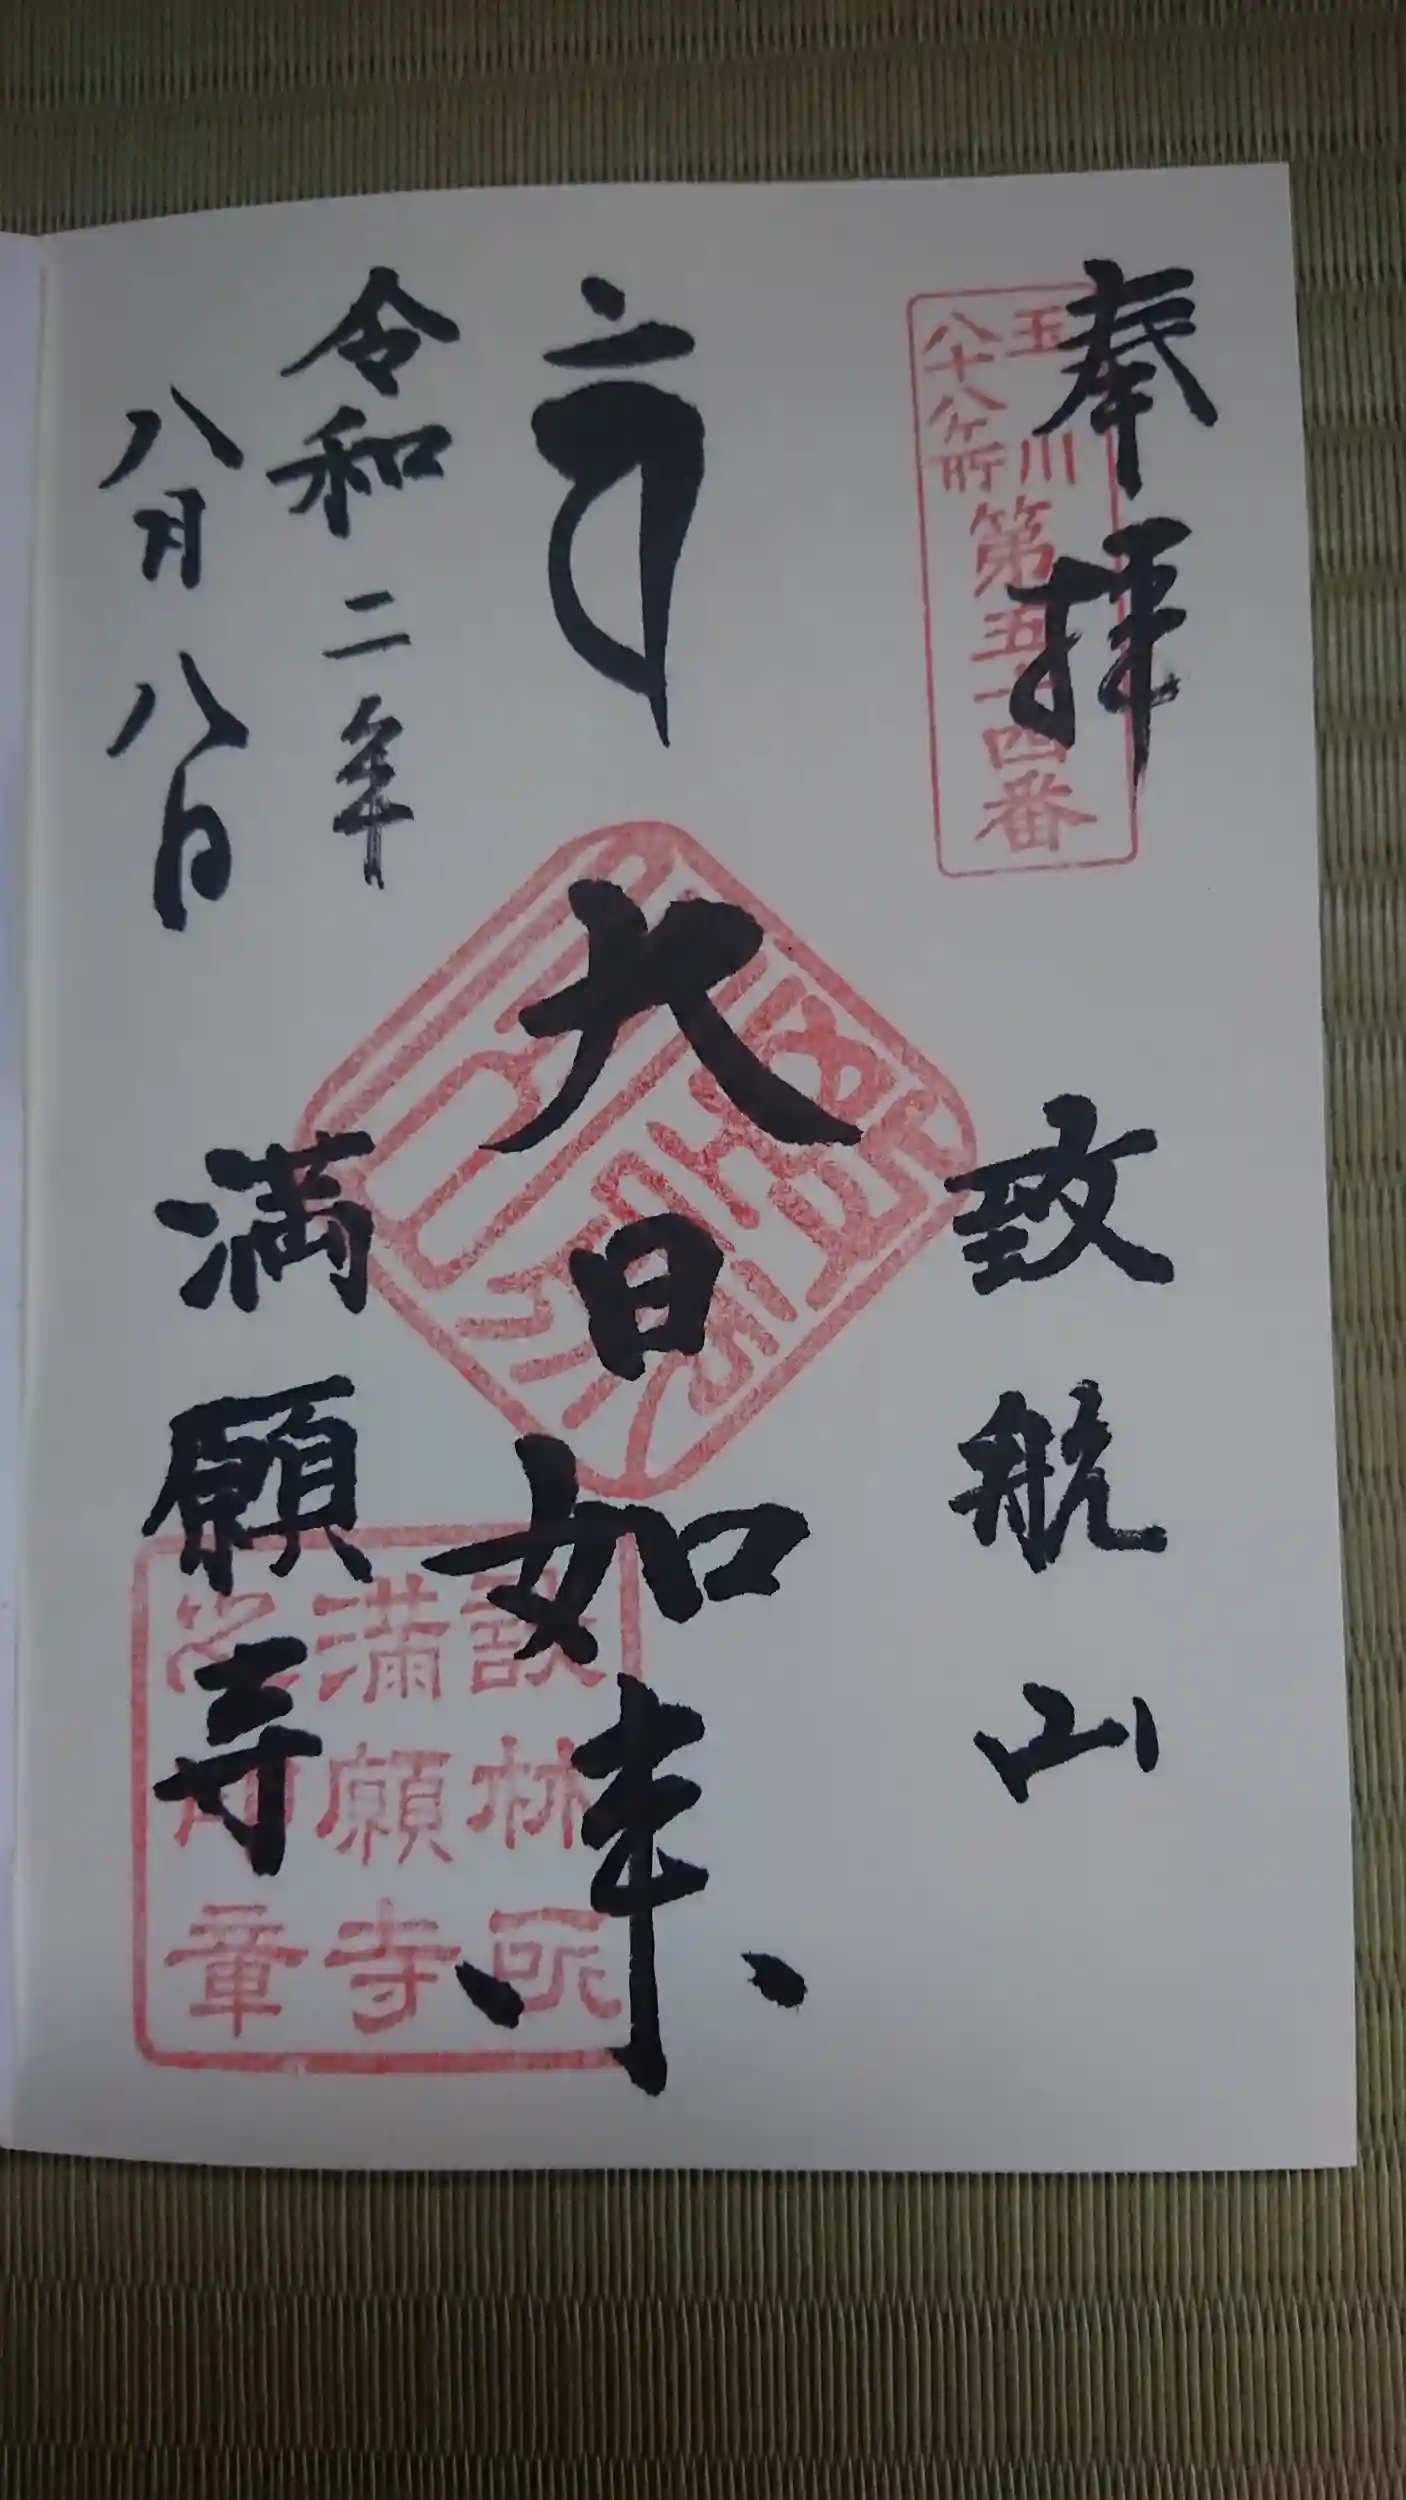 奉拝
玉川
八十八ケ所
第五十四番
致航山
大日如来
令和二年
八月八日
満願寺
談林所
満願寺
之印章